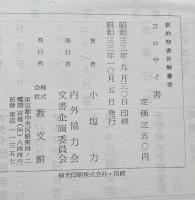 新約聖書新解叢書
コロサイ書
定価三五〇円
昭和三三年九月三〇日 印刷
昭和三三年一〇月五日 発行
著者 小塩力
発行者 内外協力会
文書企画委員会
発行所 株式会社 教文館
東京都中央区銀座四ノ二
電話京橋(56)八四四六
振替東京一一三五七
株式会社・印刷